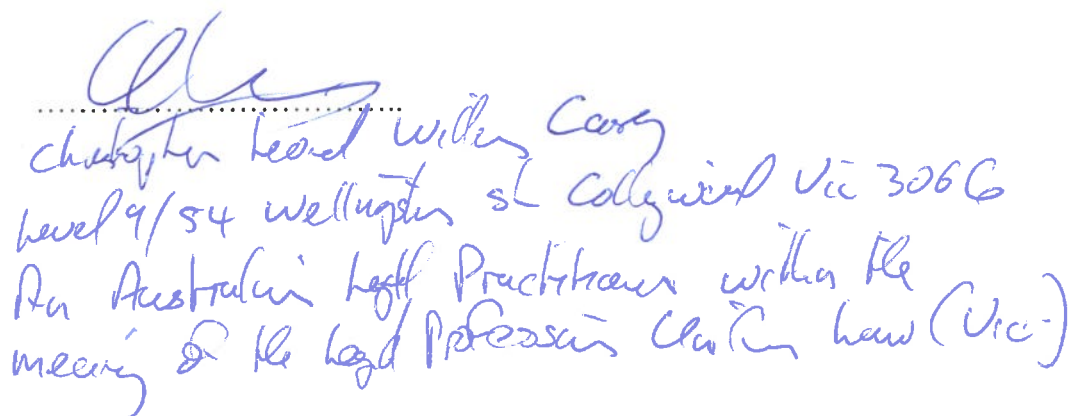 Christopher Leonard William Carey
Level 9/54 Wellington St Collingwood Vic 3066
An Australian Legal Practitioner within the
meaning of the Legal Profession Uniform Law (Vic)